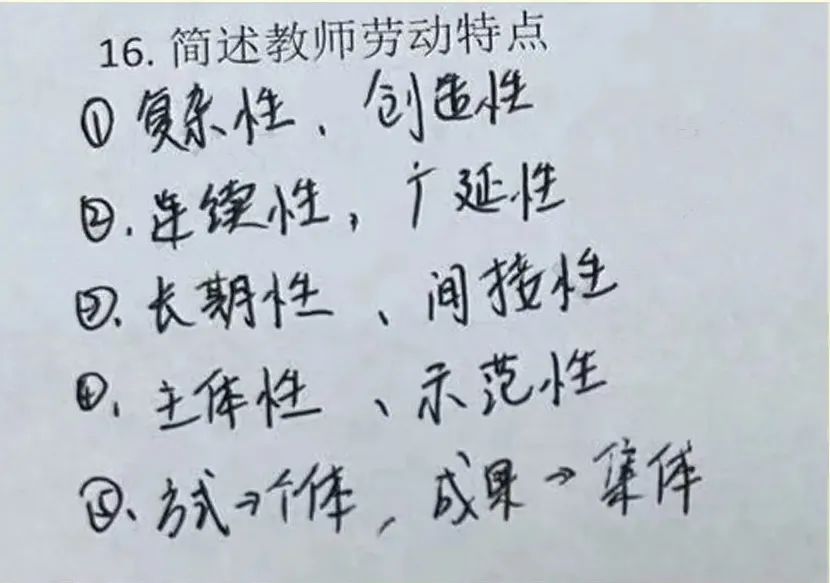 16. 简述教师劳动特点
①复杂性、创造性
②.连续性，广延性
③.长期性、间接性
④.主体性、示范性
⑤.方式→个体，成果→集体